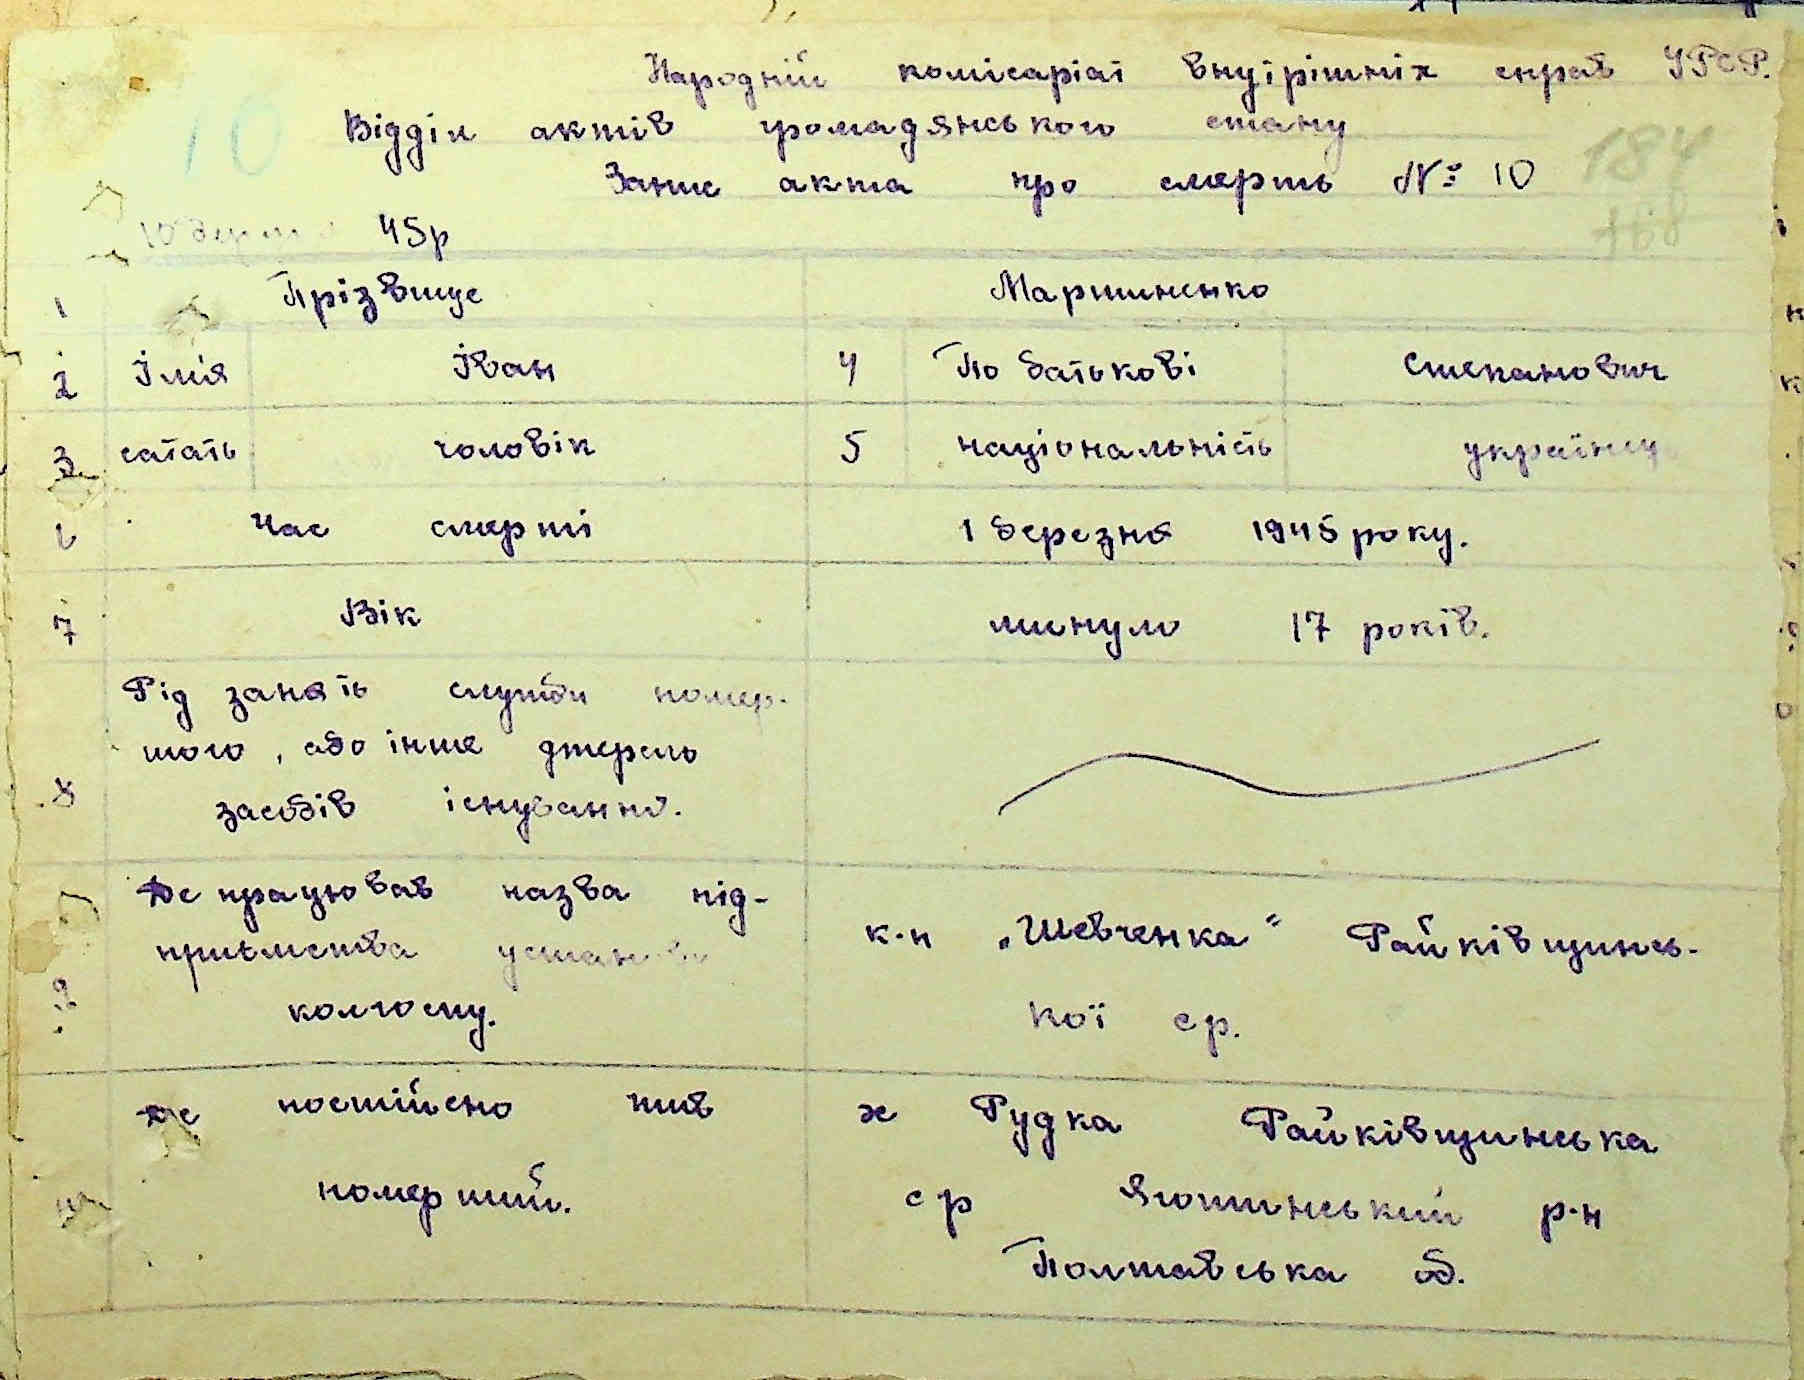 10
Народній комісаріат внутрішніх справ УРСР.
Відділ актів громадянського стану
Запис акта про смерть № 10
184
10 45р
1 Прізвище Мартиненко
2 Імʼя Іван 4 По батькові Степанович
3 стать чоловік 5 національність українець
6 Час смерті 1 березня 1945 року.
7 Вік минуло 17 років.
8 Рід занять служби помер-
шого, або інше джерело
засобів існування.
9 Де працював назва під-
приємства установи
колгоспу.
к-п „Шевченка“ Райківщинсь-
кої ср.
Де постійєно жив
померший.
х Рудка Райківщинська
ср Яготинський р-н
Полтавська об.